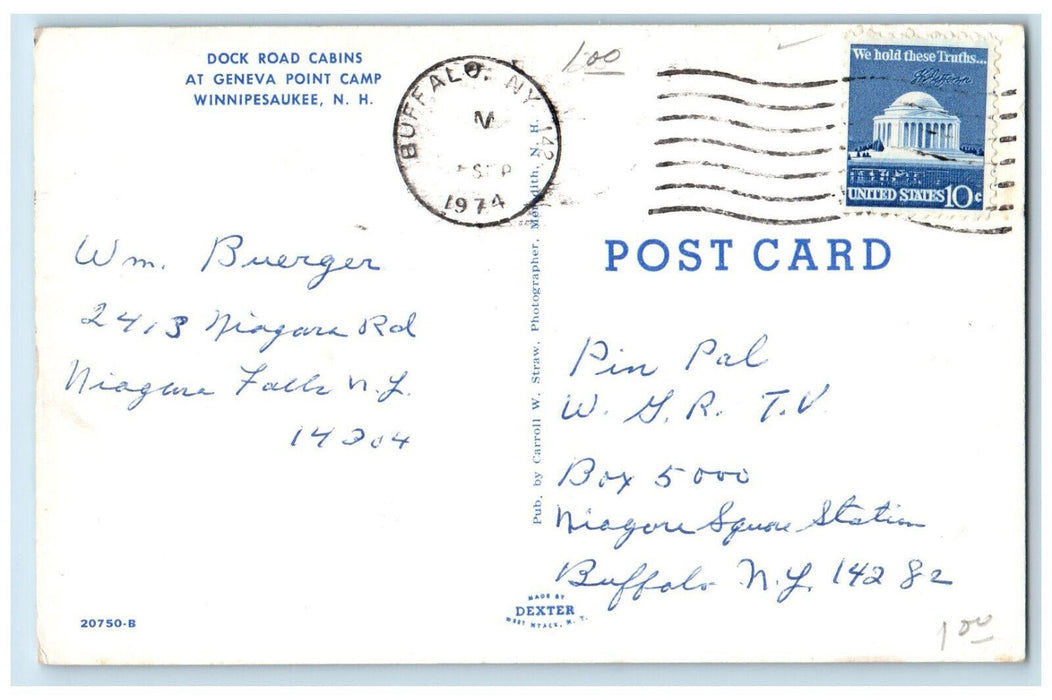 DOCK ROAD CABINS
AT GENEVA POINT CAMP
WINNIPESAUKEE, N. H.
BUFFALO, NY 142
M
SEP
1974
1.00
We hold these Truths...
UNITED STATES 10c
POST CARD
Wm. Buerger
2413 Niagara Rd
Niagara Falls N.Y.
14304
Pub. by Carroll W. Straw, Photographer, Meredith, N. H.
Pin Pal
W. G. R. T.V
Box 5000
Niagara Square Station
Buffalo N.Y. 14282
MADE BY
DEXTER
WEST NYACK, N. Y.
20750-B
1 00